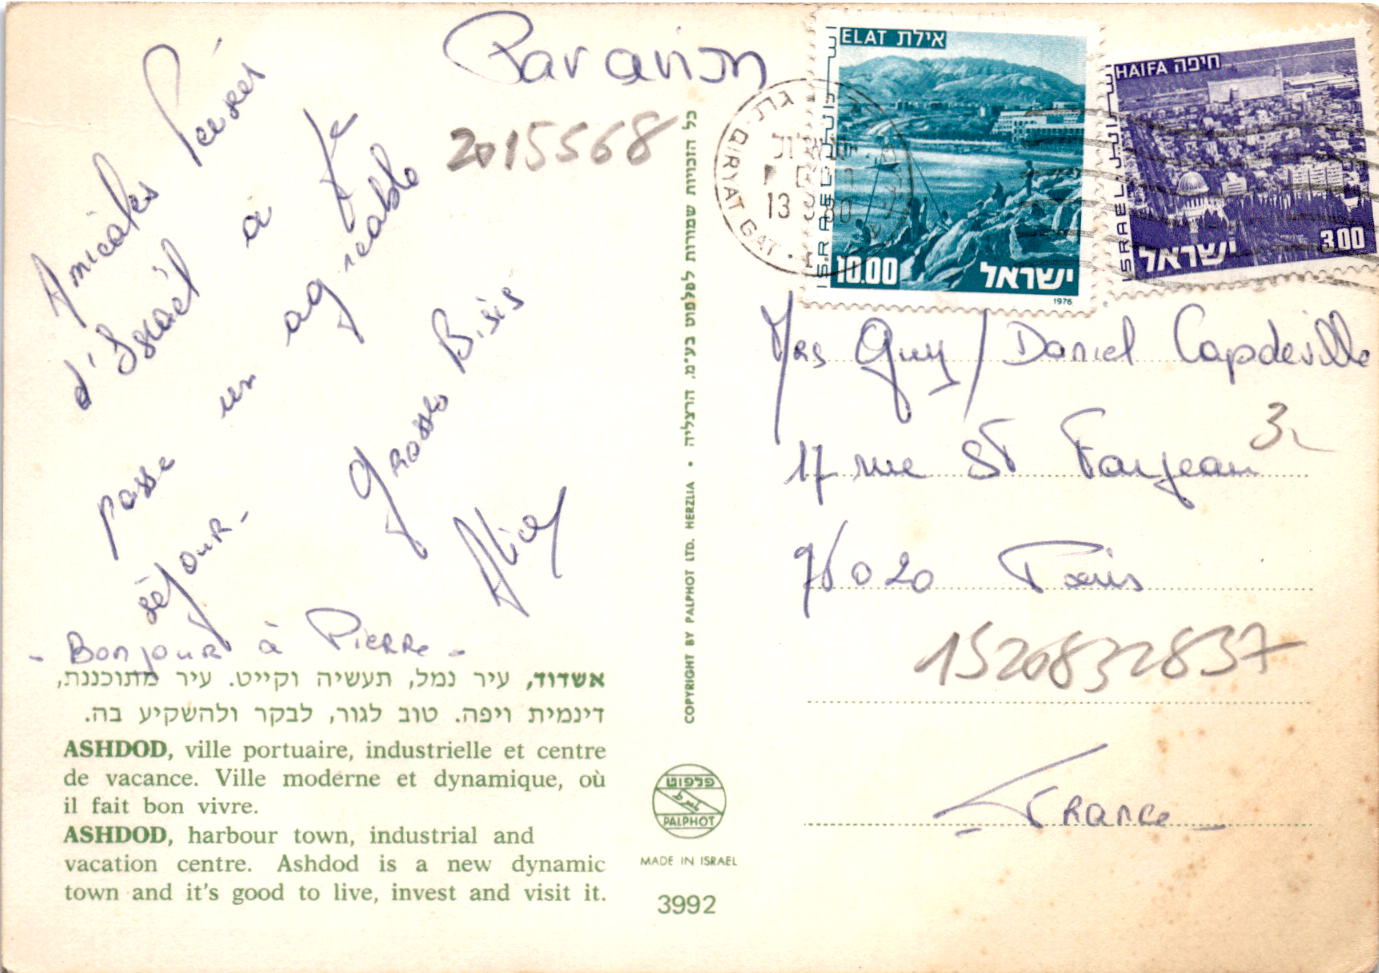 Par avion
2015568
Amicales Pensées
d'Israël où je
passe un agréable
séjour-
Grosses Bises
Alice
- Bonjour à Pierre -
אשדוד, עיר נמל, תעשיה וקייט. עיר מתוכננת,
דינמית ויפה. טוב לגור, לבקר ולהשקיע בה.
ASHDOD, ville portuaire, industrielle et centre
de vacance. Ville moderne et dynamique, où
il fait bon vivre.
ASHDOD, harbour town, industrial and
vacation centre. Ashdod is a new dynamic
town and it's good to live, invest and visit it.
כל הזכויות שמורות לפלפוט בע"מ. הרצליה •
COPYRIGHT BY PALPHOT LTD. HERZLIA
פלפוט
PALPHOT
MADE IN ISRAEL
3992
ELAT אילת
ISRAEL
10.00 ישראל
1976
HAIFA חיפה
ISRAEL
ישראל 3.00
גת
QIRYAT GAT
13
80
Mrs Guy / Daniel Capdeville
17 rue St Fargeau
75020 Paris
1520832837
France